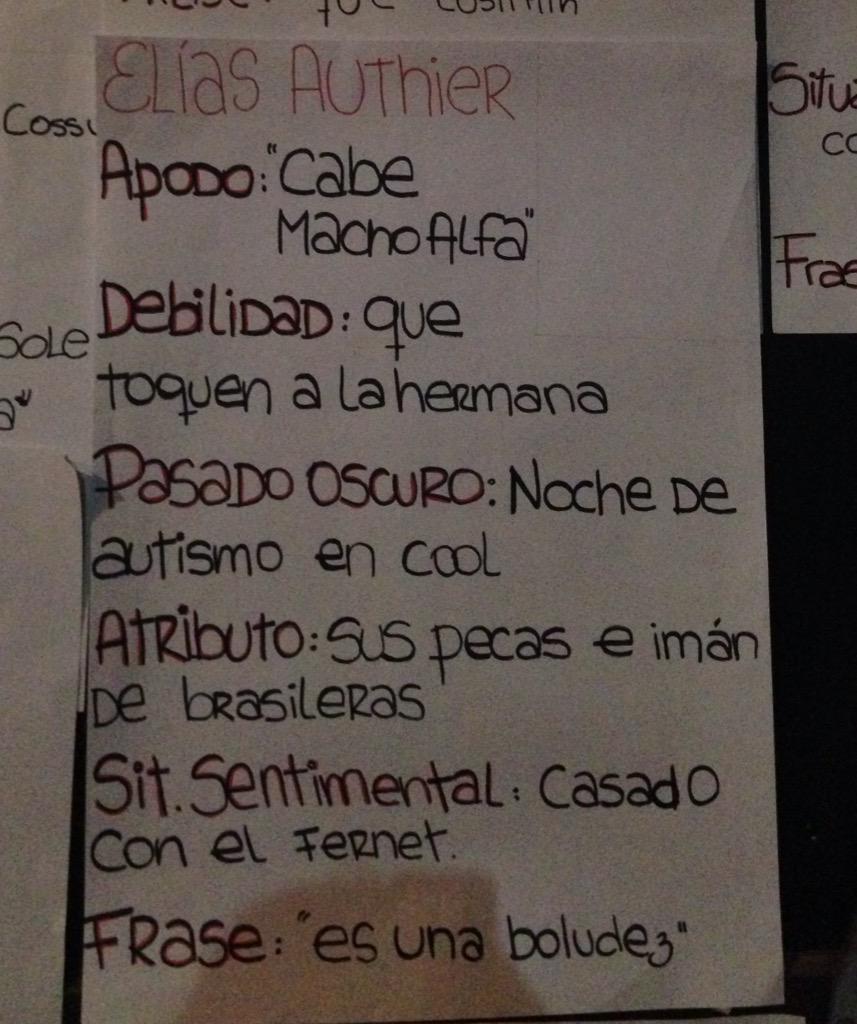 que Cosimin
Elías Authier
Cossi
Apodo: "Cabe
Macho Alfa"
Situa
co
Frase
Debilidad: que
toquen a la hermana
Sole
Pasado oscuro: Noche de
autismo en cool
Atributo: sus pecas e imán
de brasileras
Sit. Sentimental: Casado
con el Fernet.
Frase: "es una boludez"